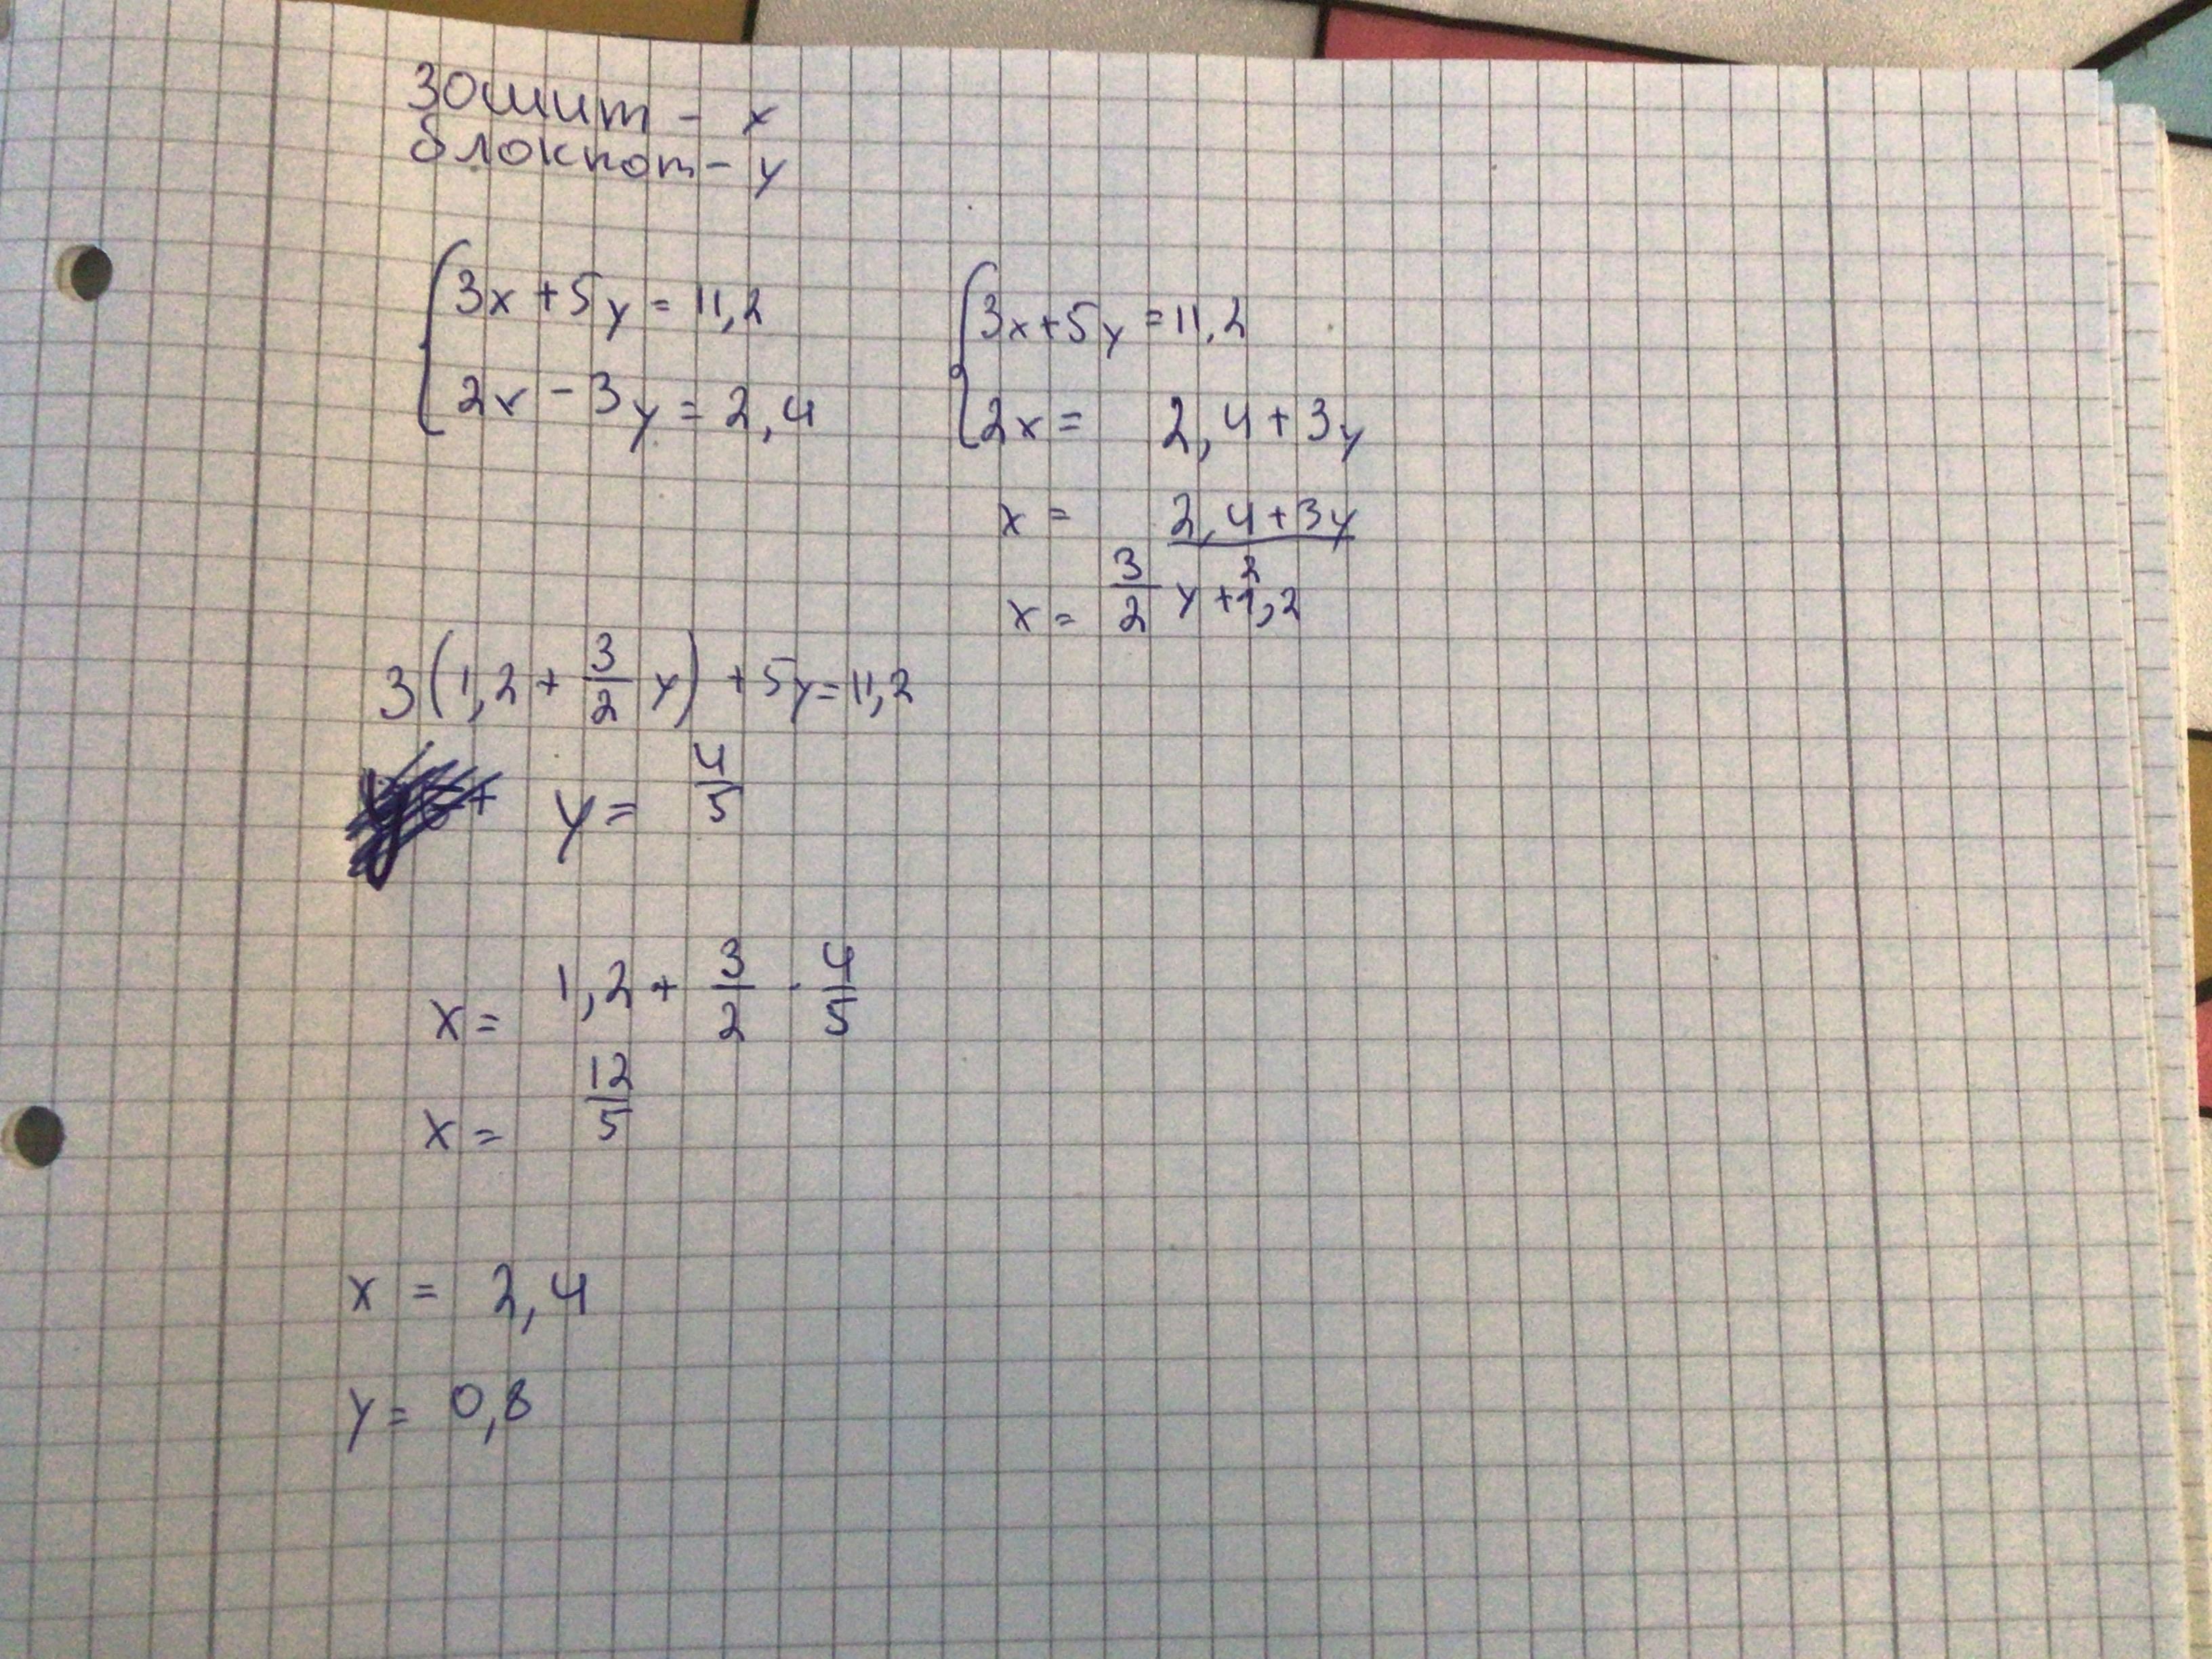 Зошит - x
блокнот - y
3x + 5y = 11,2
2x - 3y = 2,4
3x + 5y = 11,2
2x = 2,4 + 3y
x = 2,4 + 3y / 2
x = 3/2 y + 1,2
3(1,2 + 3/2 y) + 5y = 11,2
y = 4/5
x = 1,2 + 3/2 · 4/5
x = 12/5
x = 2,4
y = 0,8